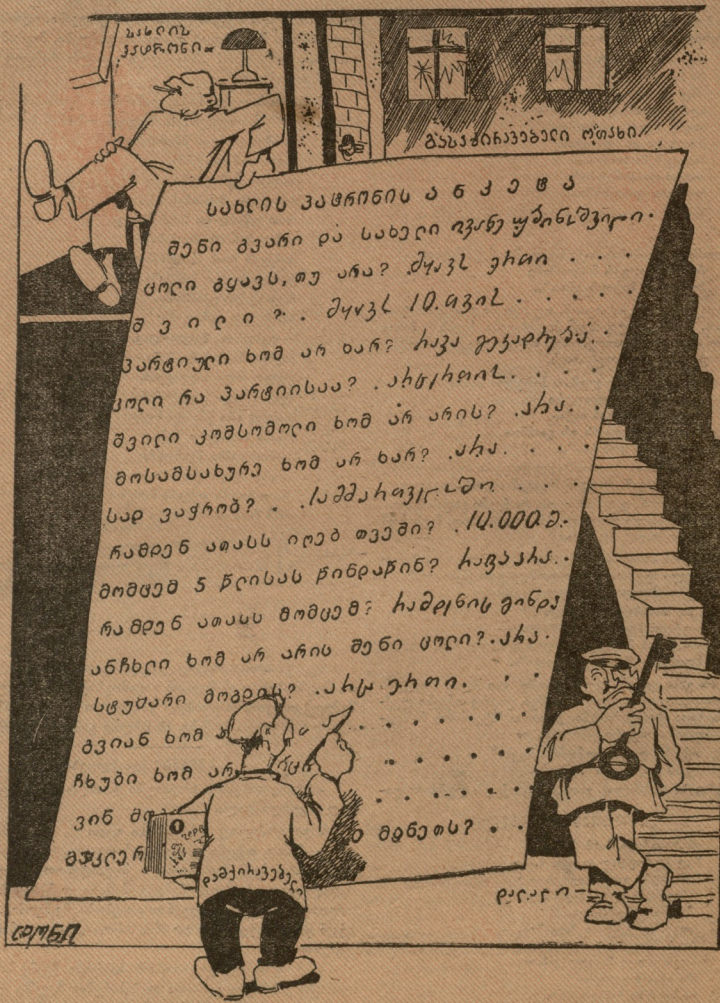 სახლის
პატრონი
გასაქირავებელი ოთახი
სახლის პატრონის ანკეტა
შენი გვარი და სახელი ივანე
ცოლი გყავს, თუ არა? მყავს ერთი . . .
შვილი? . მყავს 10. თვის . . . . .
პარტიული ხომ არ ხარ? რავა გეკადრება. .
ცოლი რა პარტიისაა? . არცერთის. . . .
შვილი კომსომოლი ხომ არ არის? .არა. . .
მოსამსახურე ხომ არ ხარ? .არა. . . .
სად ვაჭრობ? . .სამმართველოში . . . .
რამდენ ათასს იღებ თვეში? .10.000.მ.
მომცემ 5 წლისას წინდაწინ? რატა არა. .
რამდენ ათასს მომცემ? რამდენის გინდა
ანჩხლი ხომ არ არის შენი ცოლი?.არა.
სტუმარი მოგდის? .არც ერთი. . .
გვიან ხომ ა
ჩხუბი ხომ არ
ვინ მო
მდნეთს? . .
დამქირავებელი
დალალი
დონი